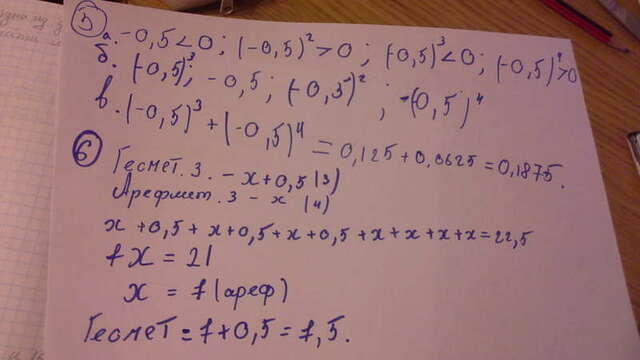 5 а. -0,5<0; (-0,5)²>0; (-0,5)³<0; (-0,5)⁴>0
б. (-0,5)³; -0,5; (-0,5)²; -(0,5)⁴
в. (-0,5)³+(-0,5)⁴ = 0,125+0,0625=0,1875.
6 Геомет. з. - x+0,5 (3)
Арефмет. з - x (4)
x+0,5+x+0,5+x+0,5+x+x+x+x=22,5
7x=21
x = 7 (ареф)
Геомет = 7+0,5=7,5.